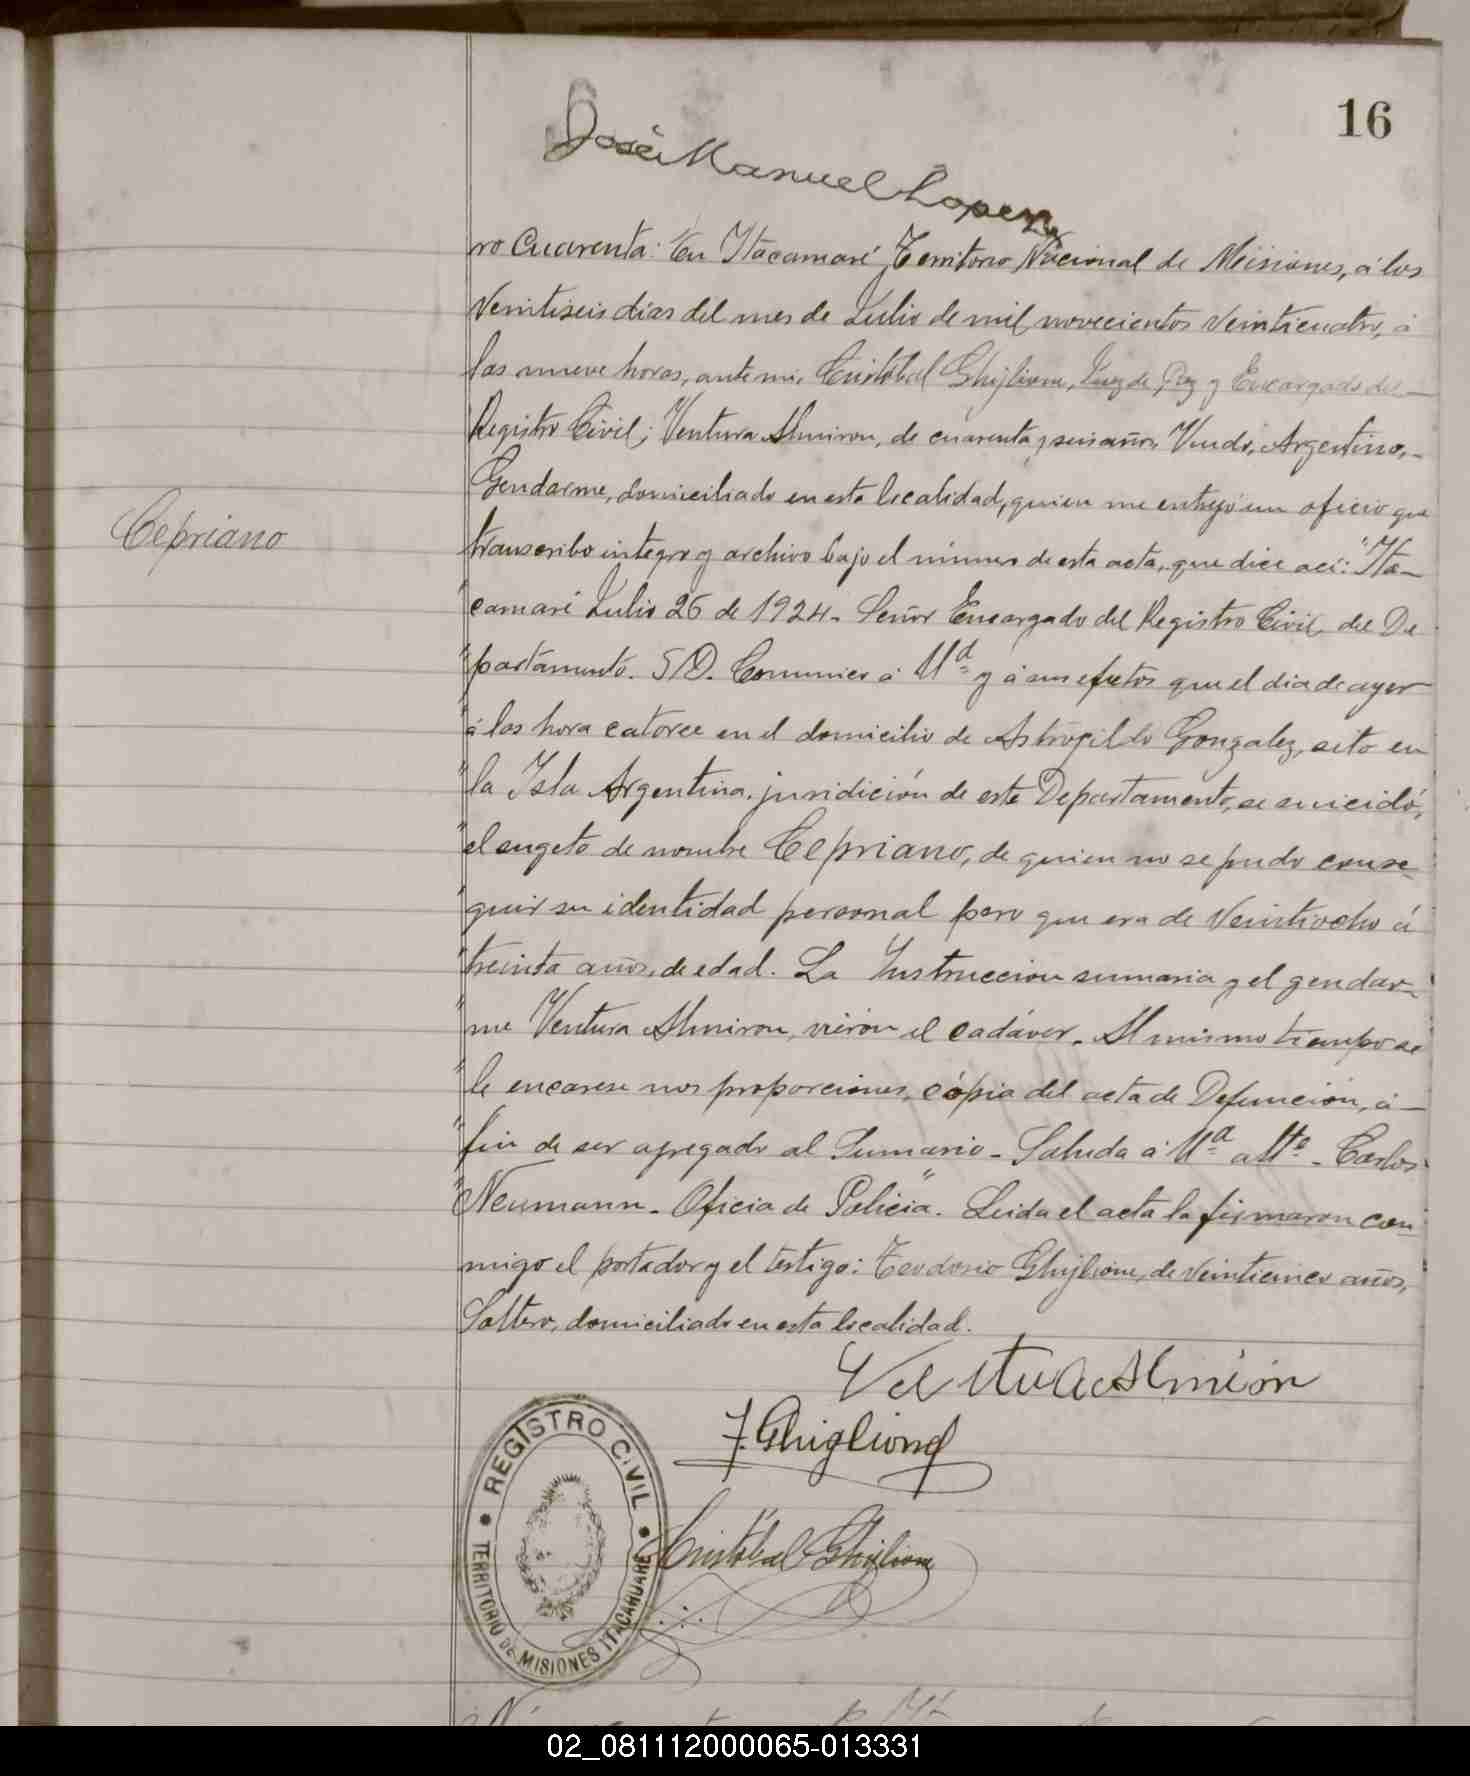 16
José Manuel Lopez
ro Cuarenta: En Itacaruaré, Territorio Nacional de Misiones, á los
Veintiseis dias del mes de Julio de mil novecientos veinticuatro, á
las nueve horas, ante mi, Cristóbal Ghiglione, Juez de Paz y Encargado del
Registro Civil; Ventura Almiron, de cuarenta y seis años, Viudo, Argentino,
Gendarme, domiciliado en esta localidad, quien me entregó un oficio que
transcribo integro y archivo bajo el número de esta acta, que dice asi: "Ita-
Cepriano
"caruaré Julio 26 de 1924. Señor Encargado del Registro Civil del De
"partamento. S/D. Comunico á Ud y á sus efectos que el dia de ayer
"á las hora catorce en el domicilio de Astrogildo Gonzalez, sito en
"la Isla Argentina, juridición de este Departamento, se suicidó,
"el sugeto de nombre Cepriano, de quien no se pudo conse
"guir su identidad personal pero que era de Veintiocho á
"treinta años, de edad. La Instruccion sumaria y el gendar-
"me Ventura Almiron, vieron el cadáver. Al mismo tiempo se
"le encarese nos proporciones, cópia del acta de Defunción, á
"fin de ser agregado al Sumario - Saluda á Ud atte. - Carlos
"Neumann - Oficia de Policia". Leida el acta la firmaron con
migo el portador y el testigo: Teodosio Ghiglione, de veinticinco años,
Soltero, domiciliado en esta localidad.
Ventura Almirón
T. Ghiglione
Cristóbal Ghiglione
REGISTRO CIVIL
TERRITORIO DE MISIONES ITACARUARE
02_081112000065-013331